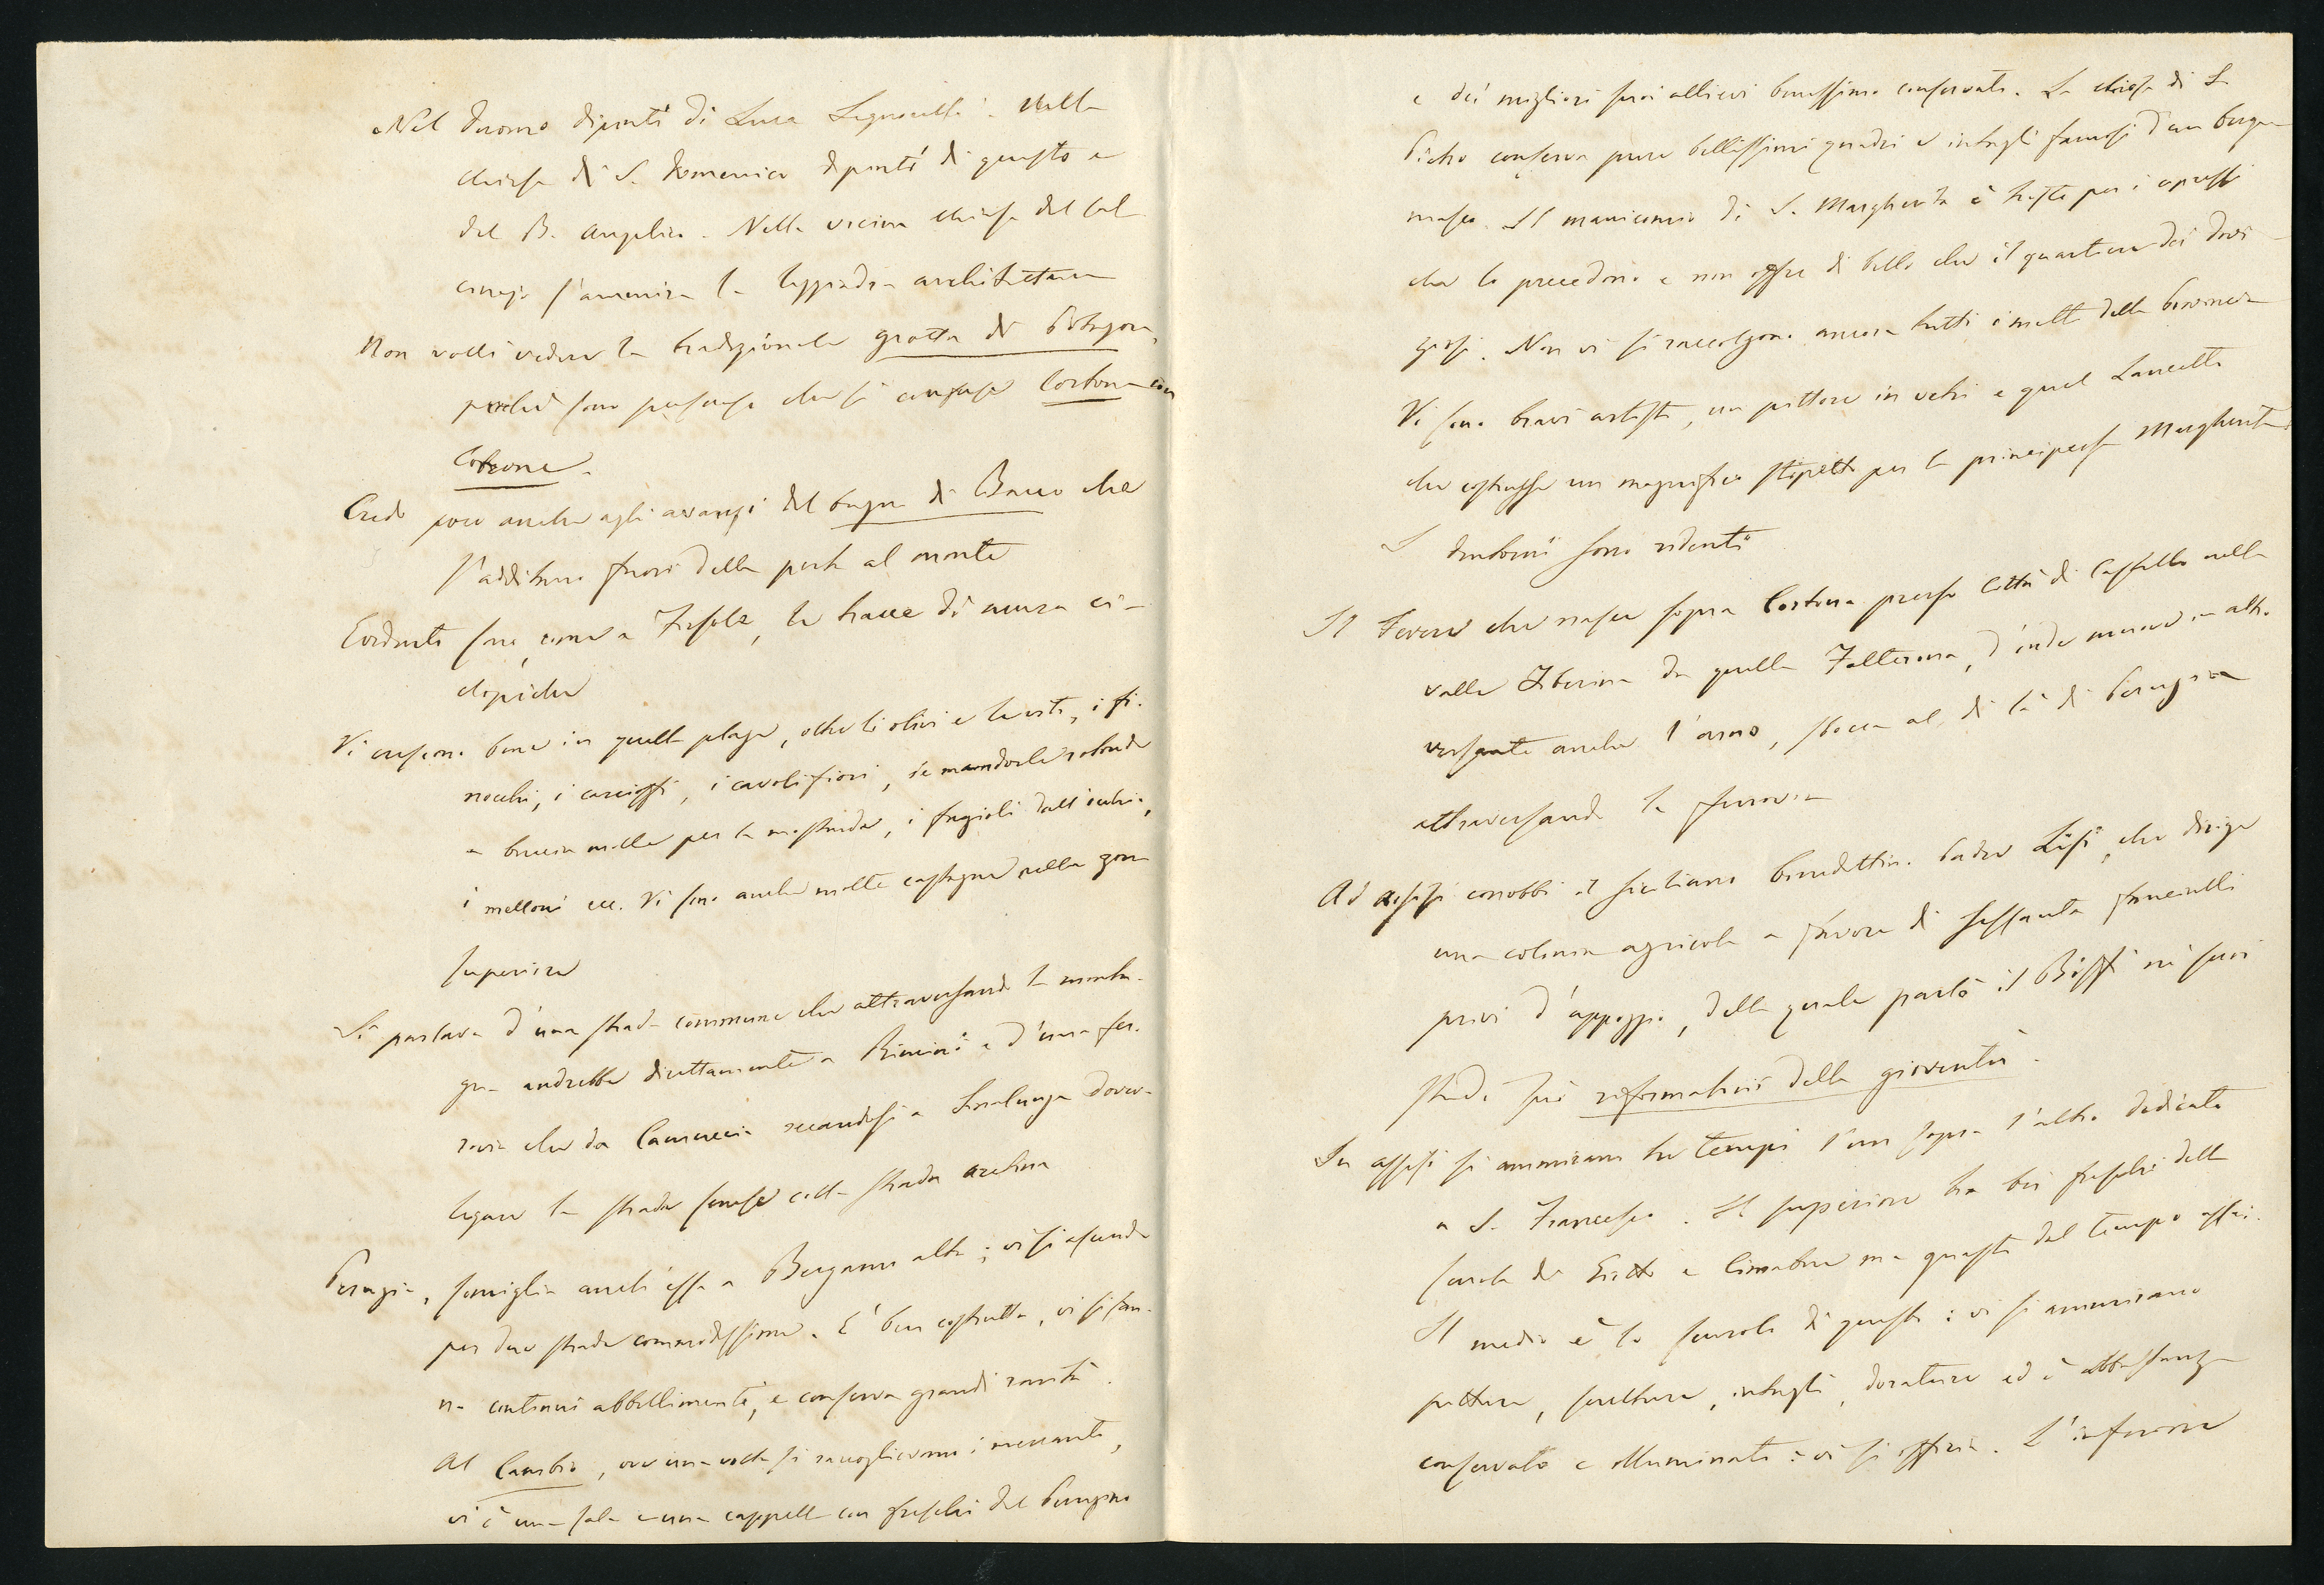 Nel duomo dipinti di Luca Signorelli. Nella
chiesa di S. Domenico dipinti di questo e
del B. Angelico. Nella vicina chiesa del Cal
cinajo s'ammira la leggiadra architettura
Non volli vedere la tradizionale grotta di Pitagora,
perchè sono persuaso che si confuse Cortona con
Cotrone.
Credo poco anche agli avanzi del bagno di Bacco che
s'additano fuori della porta al monte
Evidenti sono, come a Fiesole, le tracce di mura ci-
clopiche
Vi crescono bene in quella plaga, oltre li olivi e le viti, i fi-
nocchi, i carcioffi, i cavolifiori, le mandorle rotonde
a buccia molle per la mostarda, i fagioli dall'occhio,
i melloni ecc. Vi sono anche molte castagne nella zona
superiore
Si parlava d'una strada commune che attraversando la monta-
gna andrebbe direttamente a Rimini e d'una fer-
rovia che da Camuccia recandosi a Sinalunga dovreb-
legare la strada senese colla strada aretina
Perugia, somiglia anch'essa a Bergamo alta; vi si ascende
per due strade commodissime. E' ben costrutta, vi si fan-
no continui abbellimenti, e conserva grandi rarità.
Al Cambio, ove una volta si raccoglievano i mercanti,
vi è una sala e una cappella con freschi del Perugino
e dei migliori suoi allievi benissimo conservati. La chiesa di S.
Pietro conserva pure bellissimi quadri e intagli famosi d'un berga-
masco. Il manicomio di S. Margherita è tristo per i cipressi
che lo precedono e non offre di bello che il quartiere dei dovi-
ziosi. Non vi si raccolgono ancora tutti i matti della provincia
Vi sono bravi artisti, un pittore in vetri e quel Lancetti
che costrusse un magnifico stipetto per la principessa Margherita.
I dintorni sono ridenti
Il Tevere che nasce sopra Cortona presso Città di Castello nella
valle Tiberina da quella Falterona, d'onde muove in altro
versante anche l'Arno, sbocca al di là di Perugia
attraversando la ferrovia
Ad Assisi conobbi il siciliano benedettino Padre Lisi, che dirige
una colonia agricola a favore di sessanta fanciulli
privi d'appoggio, della quale parlò il Biffi ne' suoi
studi sui reformatorii della gioventù.
In Assisi si ammirano tre tempi l'un sopra l'altro dedicati
a S. Francesco. Il superiore ha bei freschi della
scuola di Giotto e Cimabue ma guasti dal tempo assai.
Il medio è lo scurolo di questo: vi si ammirano
pitture, sculture, intagli, dorature ed è abbastanza
conservato e illuminato: vi si offizia. L'inferiore